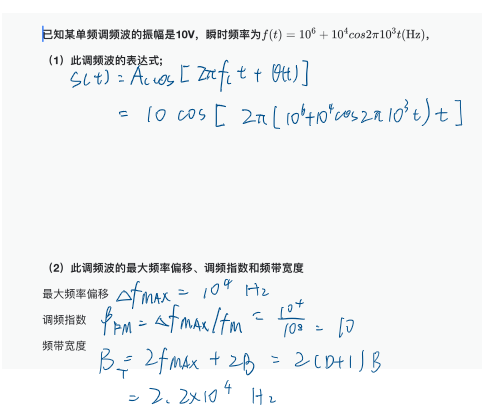 已知某单频调频波的振幅是10V，瞬时频率为f(t) = 10⁶ + 10⁴cos2π10³t(Hz)，
（1）此调频波的表达式;
S(t) = Ac cos [ 2πfct + θ(t) ]
= 10 cos [ 2π ( 10⁶+10⁴cos2π10³t ) t ]
（2）此调频波的最大频率偏移、调频指数和频带宽度
最大频率偏移 ΔfMAX = 10⁴ Hz
调频指数 βFM = ΔfMAX/fM = 10⁴/10³ = 10
频带宽度
BT = 2fMAX + 2B = 2(D+1)B
= 2.2×10⁴ Hz